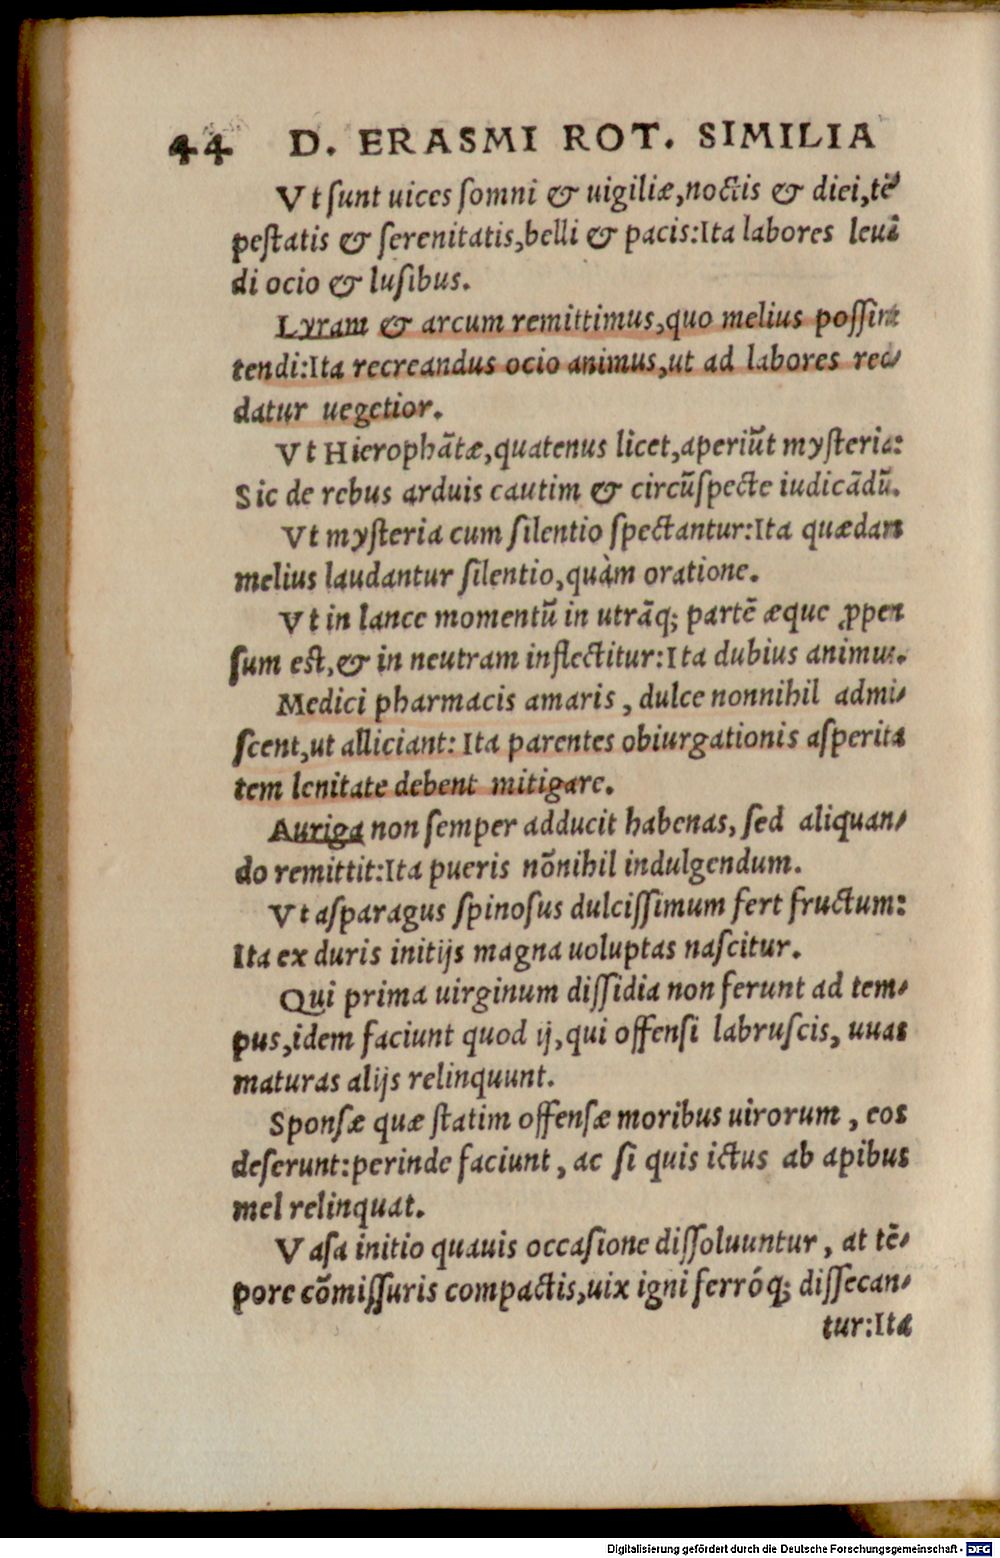 44 D. ERASMI ROT. SIMILIA
Vt sunt uices somni & uigiliæ, noctis & diei, tẽ
pestatis & serenitatis, belli & pacis: Ita labores leuã
di ocio & lusibus.
Lyram & arcum remittimus, quo melius possint
tendi: Ita recreandus ocio animus, ut ad labores red-
datur uegetior.
Vt Hierophãtæ, quatenus licet, aperiũt mysteria:
Sic de rebus arduis cautim & circũspecte iudicãdũ.
Vt mysteria cum silentio spectantur: Ita quædam
melius laudantur silentio, quàm oratione.
Vt in lance momentũ in utrãq; partẽ æque ꝓpen
sum est, & in neutram inflectitur: Ita dubius animus.
Medici pharmacis amaris, dulce nonnihil admi-
scent, ut alliciant: Ita parentes obiurgationis asperita
tem lenitate debent mitigare.
Auriga non semper adducit habenas, sed aliquan-
do remittit: Ita pueris nõnihil indulgendum.
Vt asparagus spinosus dulcissimum fert fructum:
Ita ex duris initijs magna uoluptas nascitur.
Qui prima uirginum dissidia non ferunt ad tem-
pus, idem faciunt quod ij, qui offensi labruscis, uuas
maturas alijs relinquunt.
Sponsæ quæ statim offensæ moribus uirorum, eos
deserunt: perinde faciunt, ac si quis ictus ab apibus
mel relinquat.
Vasa initio quauis occasione dissoluuntur, at tẽ-
pore cõmissuris compactis, uix igni ferróq; dissecan-
tur: Ita
Digitalisierung gefördert durch die Deutsche Forschungsgemeinschaft - DFG